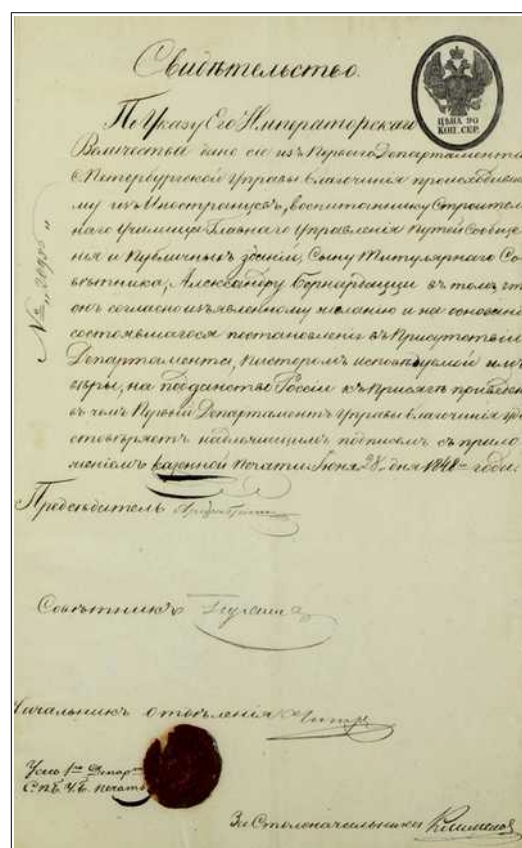 Свидѣтельство.
ЦѢНА 90
КОП. СЕР.
По Указу Его Императорскаго
Величества дано сіе изъ Перваго Департамента
С.Петербургской Управы благочинія происходивше
му изъ Иностранцевъ, воспитаннику Строитель
наго Училища Главнаго Управленія Путей Сообще
нія и Публичныхъ зданій, Сыну Титулярнаго Со
вѣтника, Александру Бернардацци въ томъ, что
онъ согласно изъявленному желанію и на основаніи
состоявшагося постановленія въ Присутствіи
Департамента, Пасторомъ исповѣдуемой имъ
вѣры, на подданство Россіи къ Присягѣ приведенъ
въ чемъ Первый Департаментъ Управы благочинія удо
стовѣряетъ надлежащимъ подписомъ съ прило
женіемъ казенной Печати Іюня 28 дня 1848 года.
№
Предсѣдатель
Совѣтникъ
Начальникъ отдѣленія
У сего 1го Депар
С.П.Б. У.Б. печать
За Столоначальника